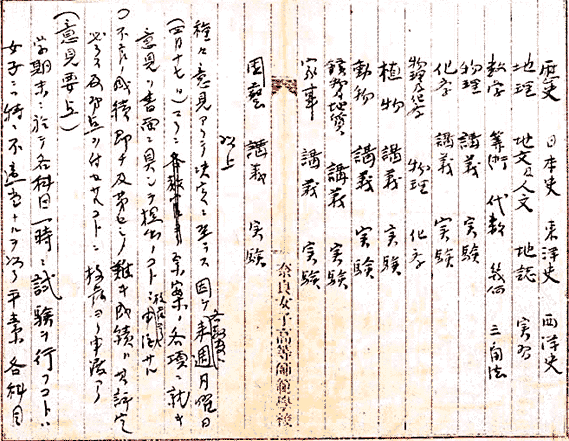 歴史 日本史 東洋史 西洋史
地理 地文及人文 地誌 実習
数学 算術 代数 幾何 三角法
物理 講義 実験
化学 講義 実験
物理及化学 物理 化学
植物 講義 実験
動物 講義 実験
鉱物及地質 講義 実験
家事 講義 実験
奈良女子高等師範学校
園藝 講義 実験
以上
種々意見アリテ決定ニ至ラス 因テ来週月曜日
(四月十七日)マテニ 本案ノ各項ニ就キ
意見ヲ書面ニ具シテ提出ノコト
不良ノ成績即チ及第セシメ難キ成績ハ其評定
(意見要点)
学期末ニ於テ各科目一時ニ試験ヲ行フコトハ
女子ニ特ニ不適当ナルヲ以テ平素各科目